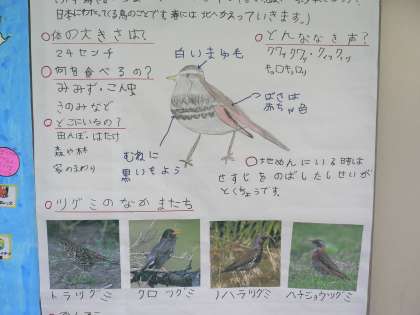 日本にわたってくる鳥のことです。春には北へかえっていきます。)
○体の大きさは?
24センチ
○何を食べるの?
みみず・こん虫
きのみなど
○どこにいるの?
田んぼ・はたけ
森や林
家のまわり
白いまゆ毛
はねは
赤ちゃ色
むねに
黒いもよう
○どんななき声?
クワッ クワッ・クィックィッ
キョロキョロリ
○地めんにいる時は
せすじをのばしたしせいが
とくちょうです。
○ツグミのなかまたち
トラツグミ
クロツグミ
ノハラツグミ
ハチジョウツグミ